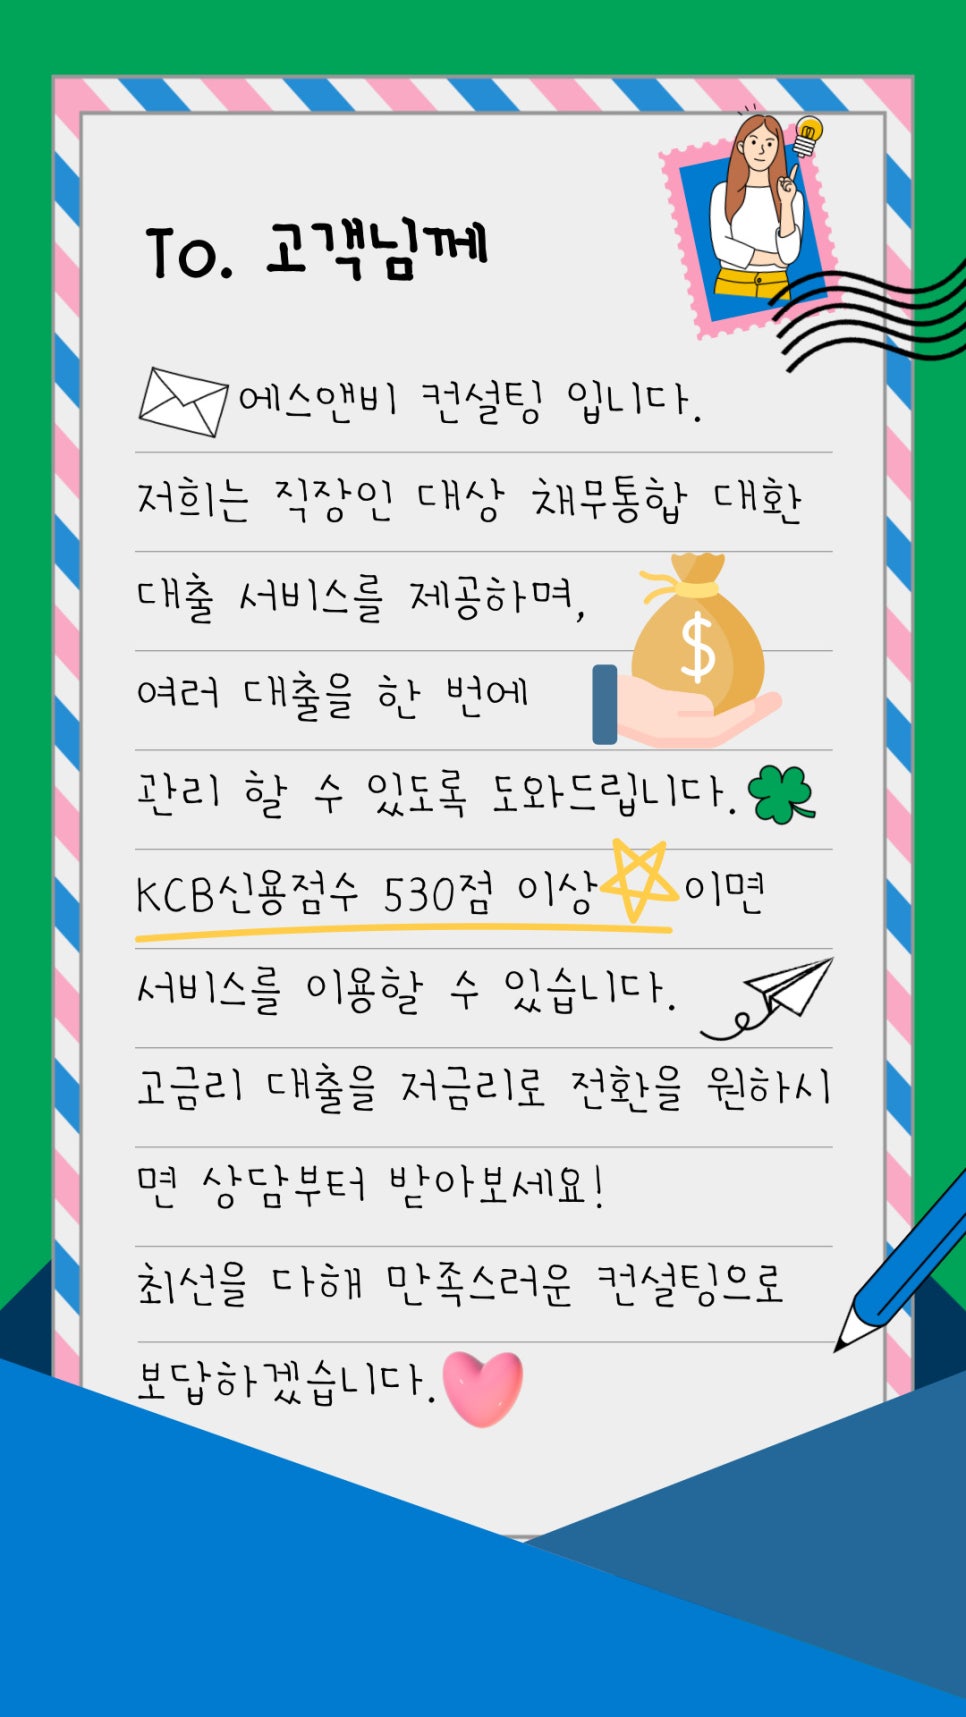 To. 고객님께
에스앤비 컨설팅 입니다.
저희는 직장인 대상 채무통합 대환
대출 서비스를 제공하며,
$
여러 대출을 한 번에
관리 할 수 있도록 도와드립니다.
KCB신용점수 530점 이상 이면
서비스를 이용할 수 있습니다.
고금리 대출을 저금리로 전환을 원하시
면 상담부터 받아보세요!
최선을 다해 만족스러운 컨설팅으로
보답하겠습니다.